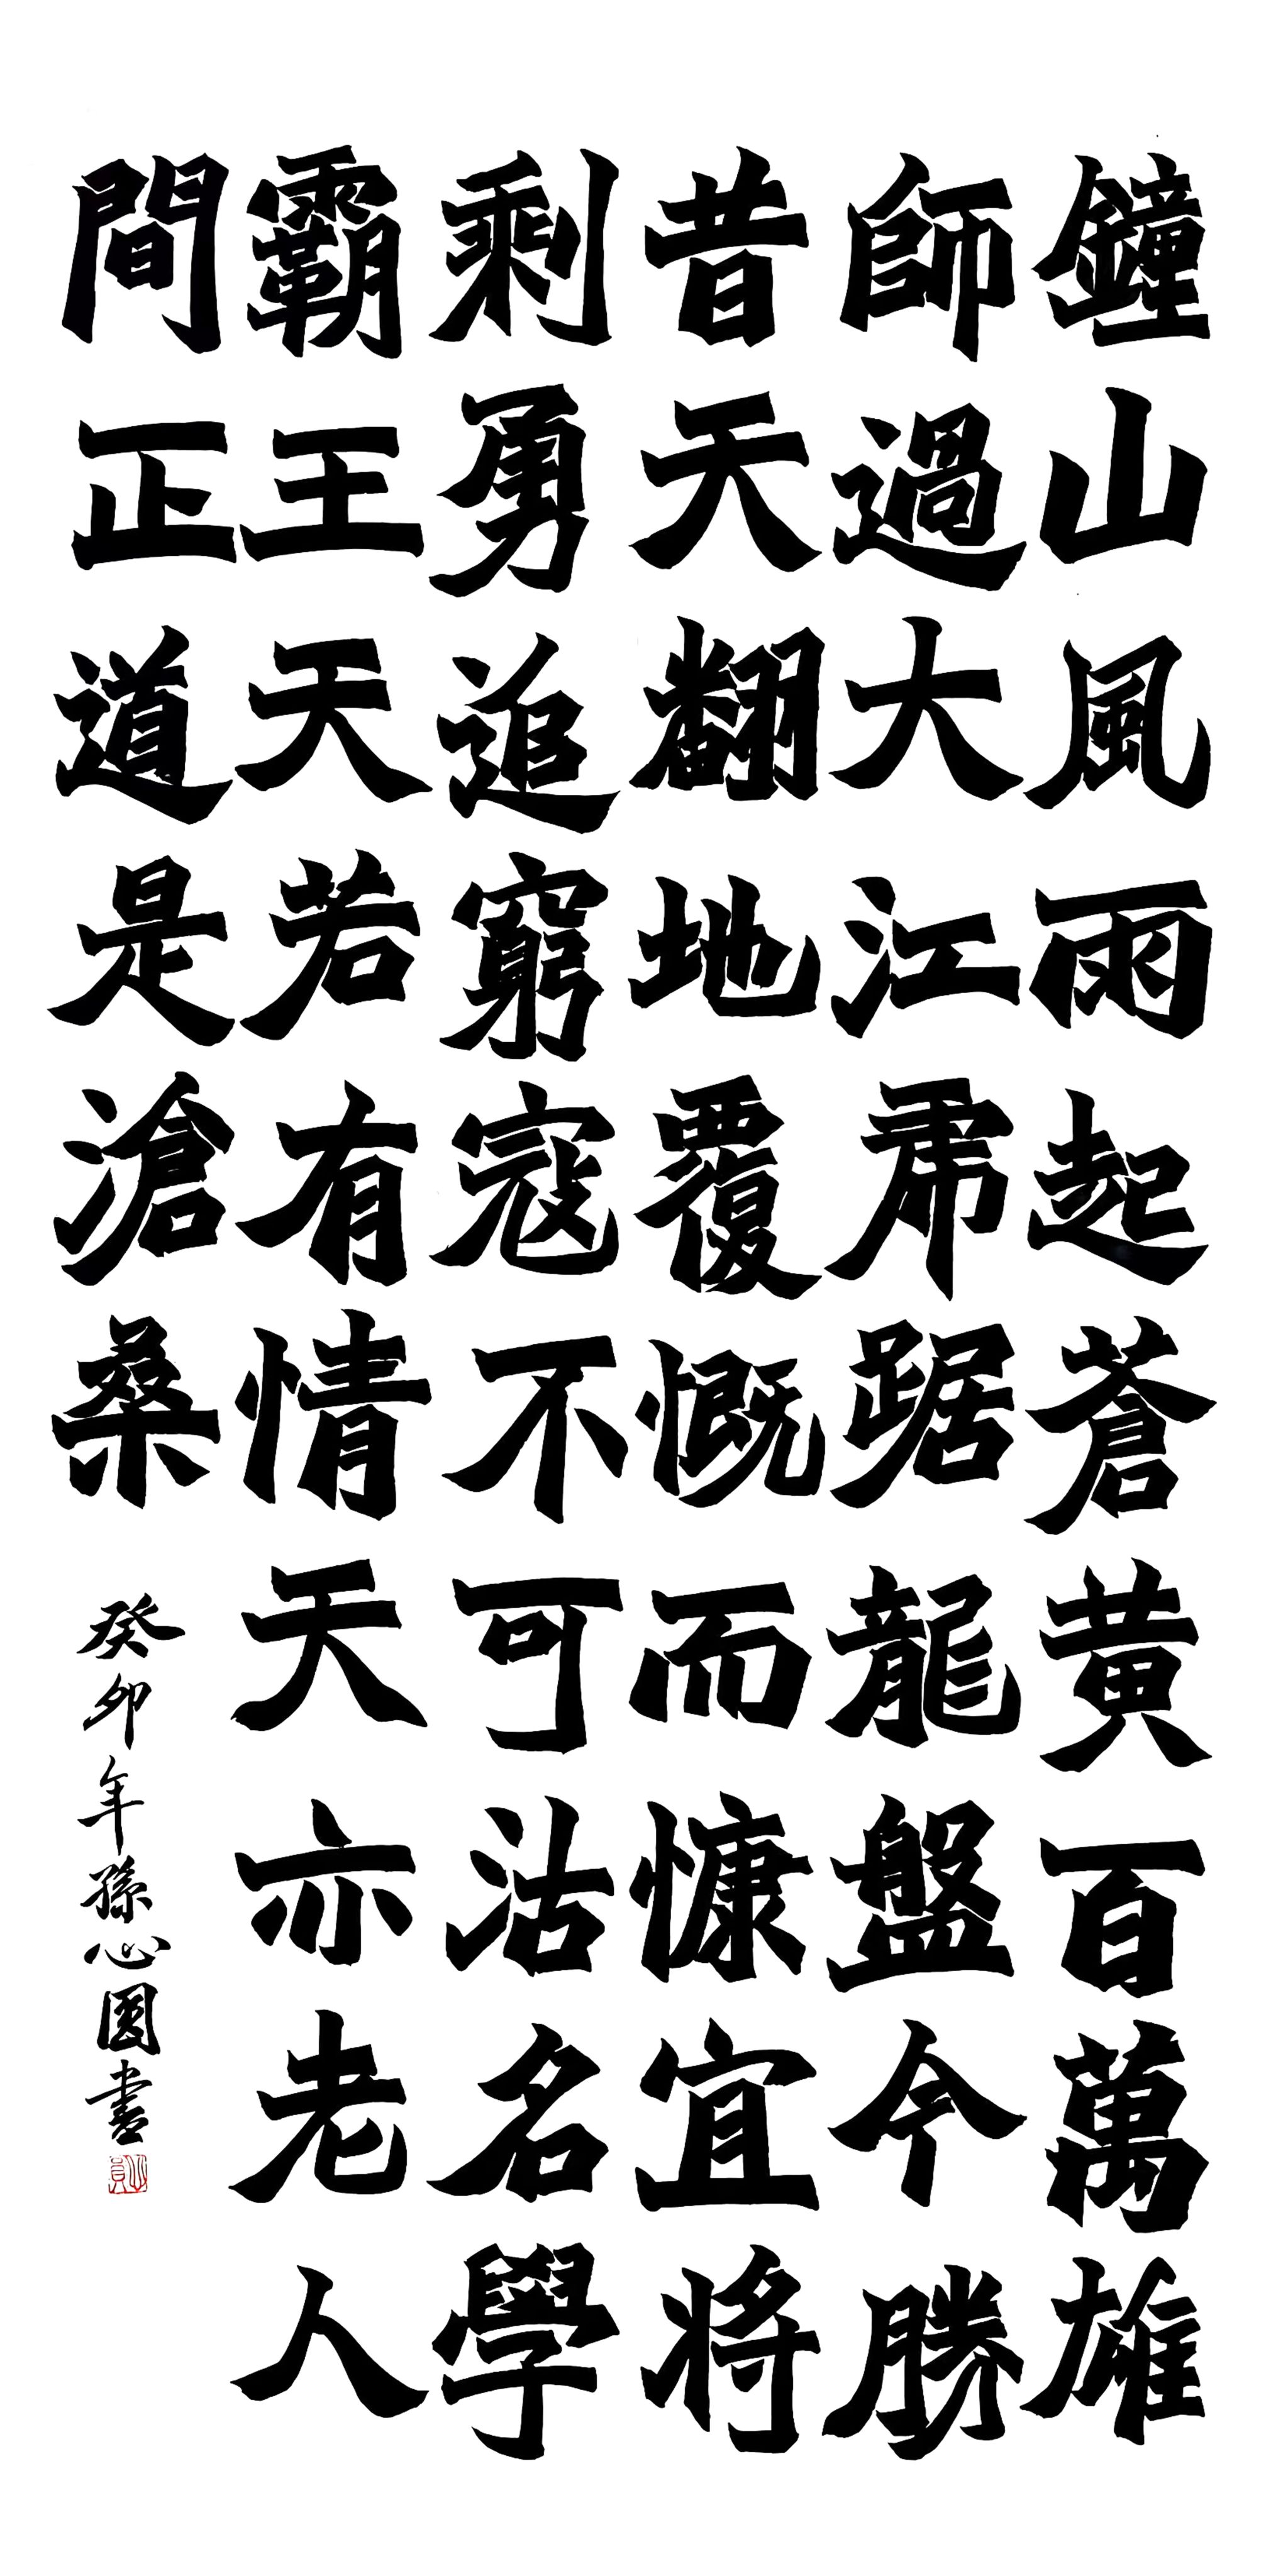 鐘山風雨起蒼黃百萬雄
師過大江虎踞龍盤今勝
昔天翻地覆慨而慷宜將
剩勇追窮寇不可沽名學
霸王天若有情天亦老人
間正道是滄桑
癸卯年孫心圓書